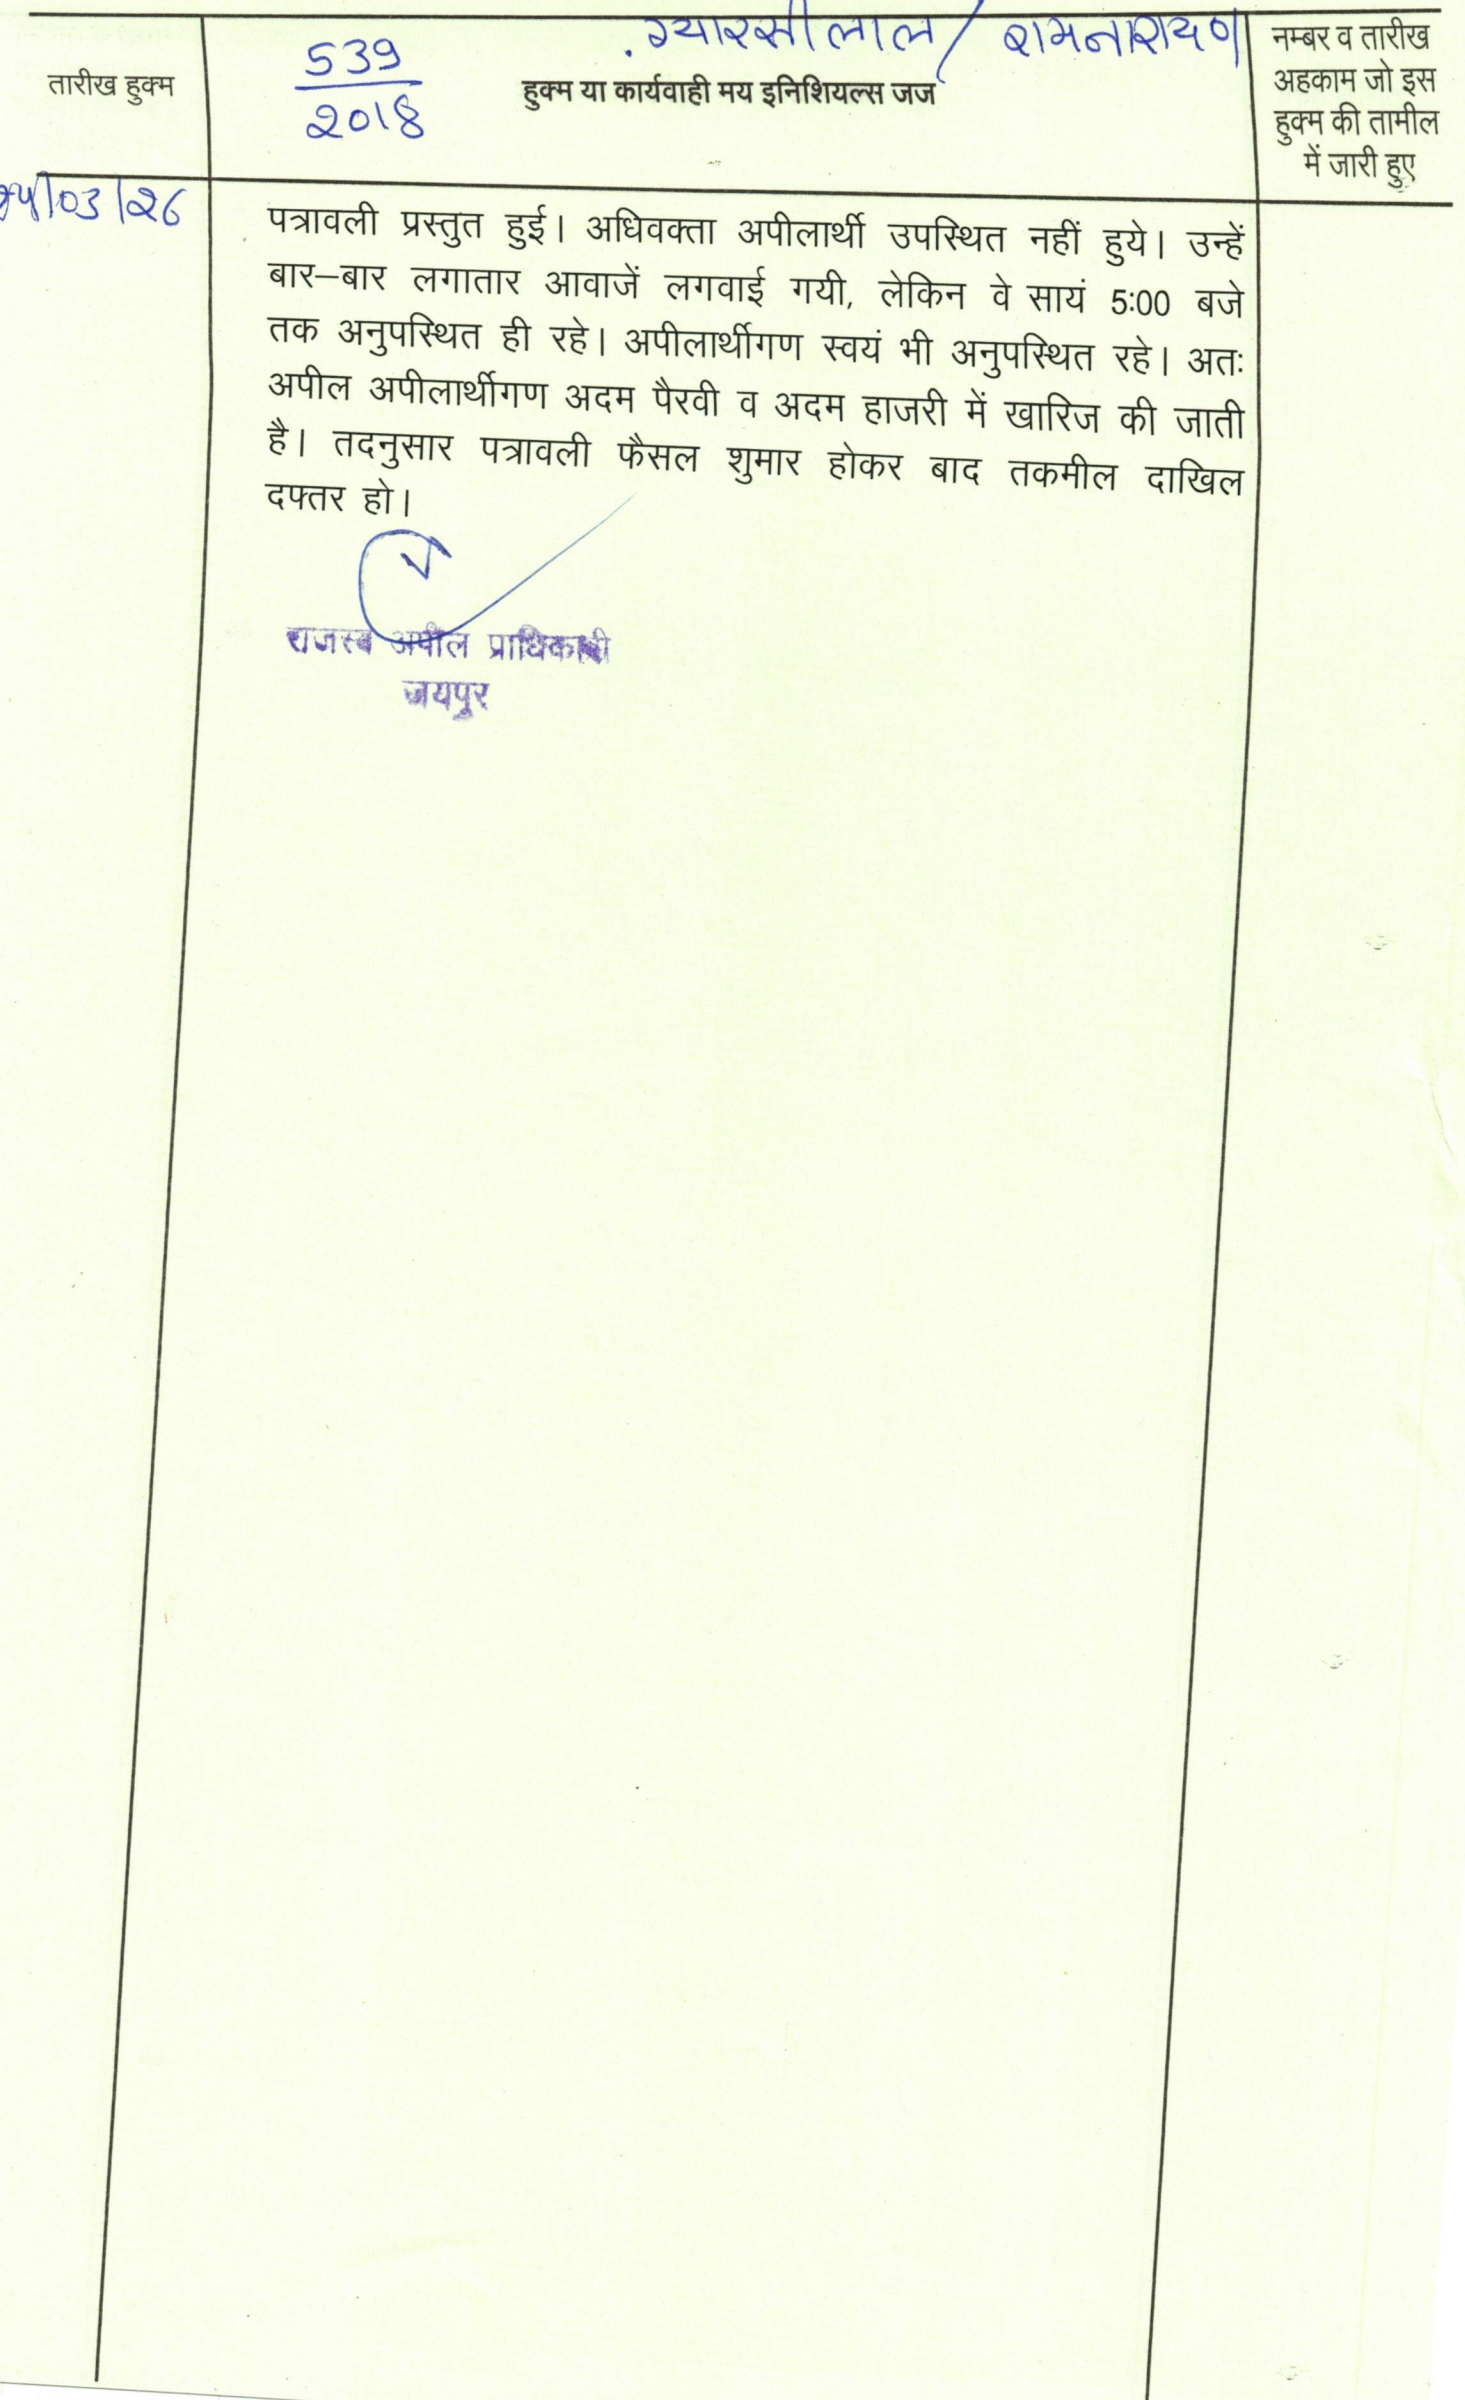 ग्यारसीलाल / रामनारायण
539
2018
तारीख हुक्म
हुक्म या कार्यवाही मय इनिशियल्स जज
नम्बर व तारीख
अहकाम जो इस
हुक्म की तामील
में जारी हुए
/03/26
पत्रावली प्रस्तुत हुई। अधिवक्ता अपीलार्थी उपस्थित नहीं हुये। उन्हें
बार–बार लगातार आवाजें लगवाई गयी, लेकिन वे सायं 5:00 बजे
तक अनुपस्थित ही रहे। अपीलार्थीगण स्वयं भी अनुपस्थित रहे। अतः
अपील अपीलार्थीगण अदम पैरवी व अदम हाजरी में खारिज की जाती
है। तदनुसार पत्रावली फैसल शुमार होकर बाद तकमील दाखिल
दफ्तर हो।
राजस्व अपील प्राधिकारी
जयपुर